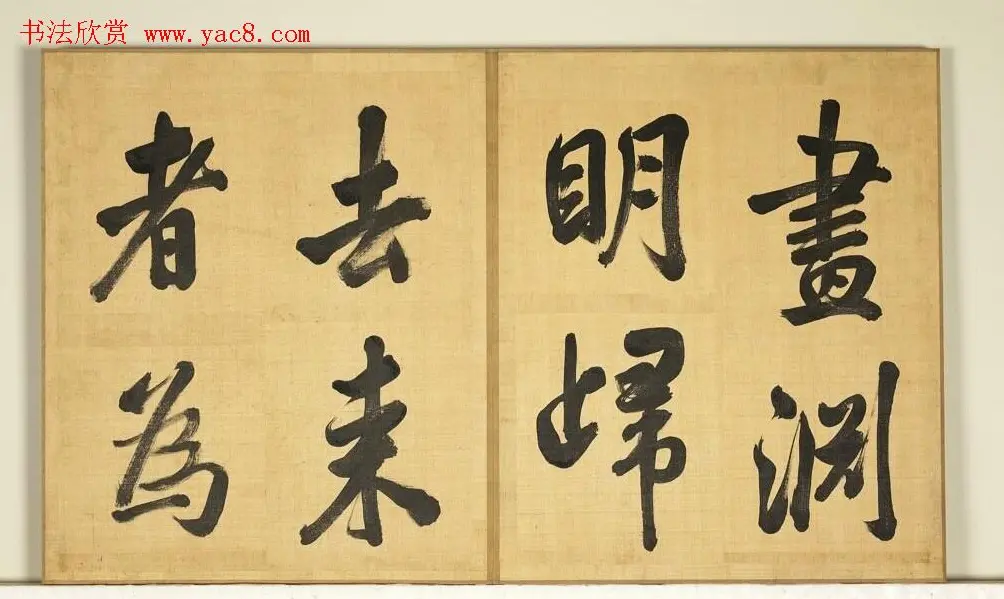 书法欣赏 www.yac8.com
畫淵
明歸
去来
者為